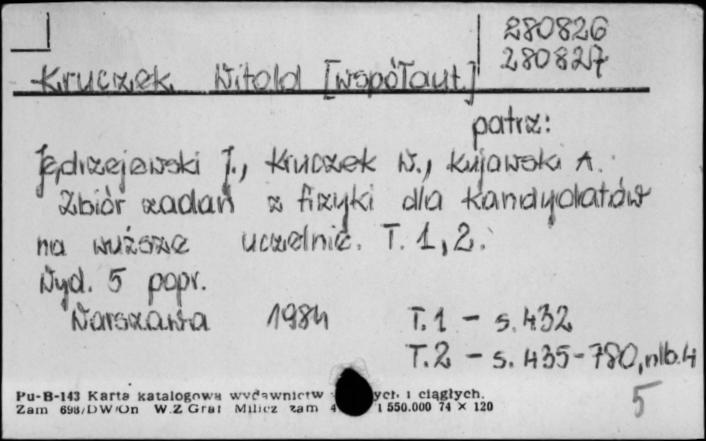 280826
280827
Kruczek Witold [współaut.]
patrz:
Jędrzejewski J., Kruczek W., Kujawski A.
Zbiór zadań z fizyki dla kandydatów
na wyższe uczelnie. T. 1, 2.
Wyd. 5 popr.
Warszawa 1984 T.1 - s. 432
T.2 - s. 435-780, nlb. 4
5
Pu-B-143 Karta katalogowa wydawnictw ych i ciągłych.
Zam 698/DW/On W.Z Graf Milicz zam 4 1 550.000 74 × 120